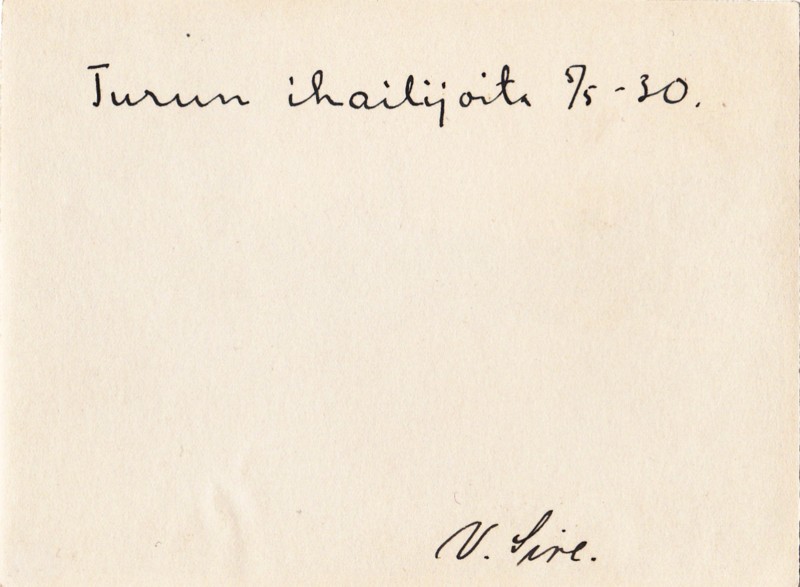 Turun ihailijoita 5/5 - 30.
V. Sire.